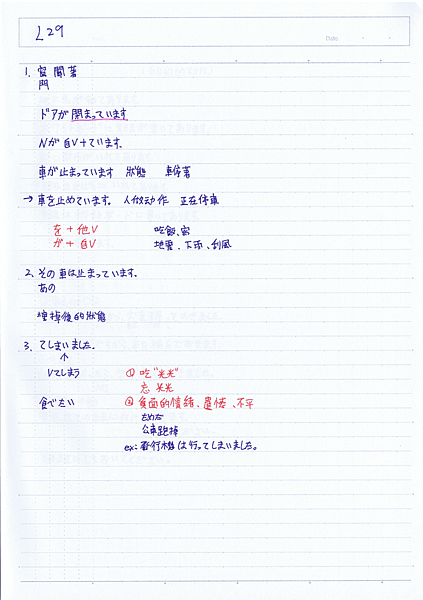 L29
Date
1. 窗 關著
門
ドアが 閉まっています
Nが 自V+ています.
車が止まっています 狀態 車停著
→ 車を止めています。 人做动作 正在停車
を + 他V 吃飯、寫
が + 自V 地震、下雨、刮風
2. その 車は止まっています.
あの
壞掉後的狀態
3. てしまいました.
↑
Vてしまう ① 吃"光光"
忘光光
食べたい ② 負面的情緒、遺憾、不平
公車跑掉
ex: 飛行機は行ってしまいました。